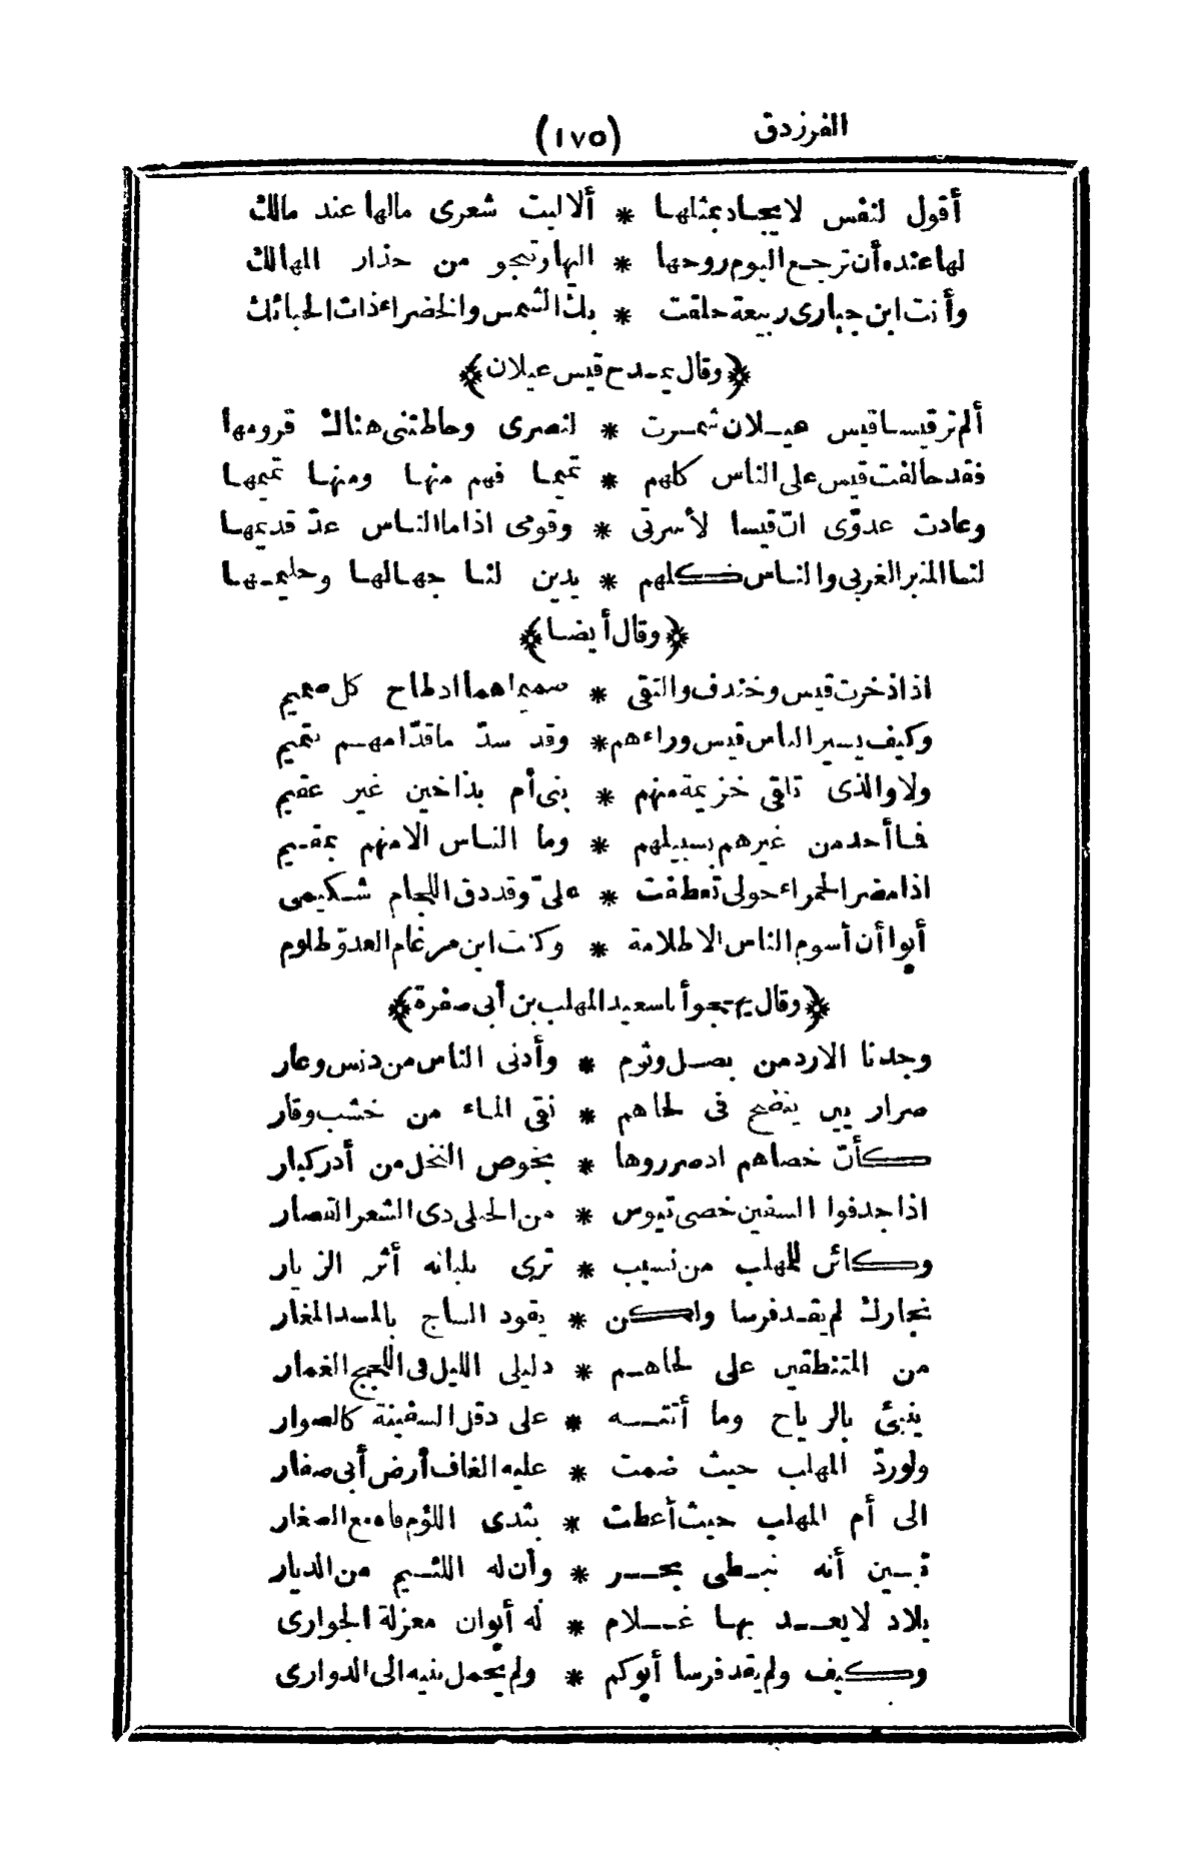 الفرزدق (١٧٥)
أقول لنفس لا يجاد بمثلها * ألا ليت شعرى مالها عند مالك
لها عنده أن ترجع اليوم روحها * اليها وتنجو من حذار المهالك
وأنت ابن جبارى ربيعة حلقت * بك الشمس والخضراء ذات الحبائك
﴿وقال يمدح قيس عيلان﴾
ألم تر قيسا قيس عيلان شمرت * لنصرى وحاطتنى هناك قرومها
فقد حالفت قيس على الناس كلهم * تميما فهم منها ومنها تميمها
وعادت عدوّى انّ قيسا لأسرتى * وقومى اذا ما الناس عدّ قديمها
لنا المنبر الغربى والناس كلهم * يدين لنا جهالها وحليمها
﴿وقال أيضا﴾
اذا ذخرت قيس وخندف والتقى * صميماهما اذ طاح كل صميم
وكيف يسير الناس قيس وراءهم * وقد سدّ ما قدّامهم بتميم
ولا والذى تلقى خزيمة منهم * بنى أم بذاخين غير عقيم
فما أحد من غيرهم بسبيلهم * وما الناس الا منهم بمقيم
اذا مضر الحمراء حولى تعطفت * علىّ وقد دق اللجام شكيمى
أبوا أن أسوم الناس الا ظلامة * وكنت ابن مرغام العدوّ ظلوم
﴿وقال يهجو أبا سعيد المهلب بن أبى صفرة﴾
وجدنا الازد من بصل وثوم * وأدنى الناس من دنس وعار
صرار يين ينضح فى لحاهم * نقى الماء من خشب وقار
كأنّ خصاهم اذ صرروها * بخوص النخل من أدر كبار
اذا جدفوا السفين خصى تيوس * من الحبلى ذى الشعر القصار
وكائن للمهلب من نسيب * ترى بلبانه أثر الزيار
نجارك لم يقد فرسا ولكن * يقود الساج بالمسد المغار
من المتنطقين على لحاهم * دليلى الليل فى اللجج الغمار
ينبئ بالرياح وما أتته * على دقل السفينة كالصوار
ولو ردّ المهلب حيث ضمت * عليه الغاف أرض أبى صفار
الى أم المهلب حيث أعطت * بثدى اللؤم فاه مع الصغار
تبين أنه نبطى بحر * وأن له اللئيم من الديار
بلاد لا يعد بها غلام * له أبوان معزلة الجوارى
وكيف ولم يقد فرسا أبوكم * ولم يحمل بنيه الى الدوارى